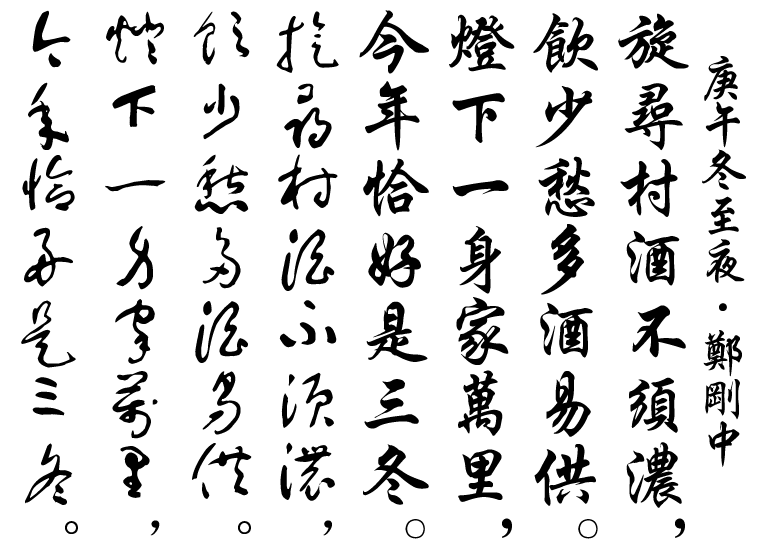 庚午冬至夜·鄭剛中
旋尋村酒不須濃，
飲少愁多酒易供。
燈下一身家萬里，
今年恰好是三冬。
旋尋村酒不須濃，
飲少愁多酒易供。
燈下一身家萬里，
今年恰好是三冬。